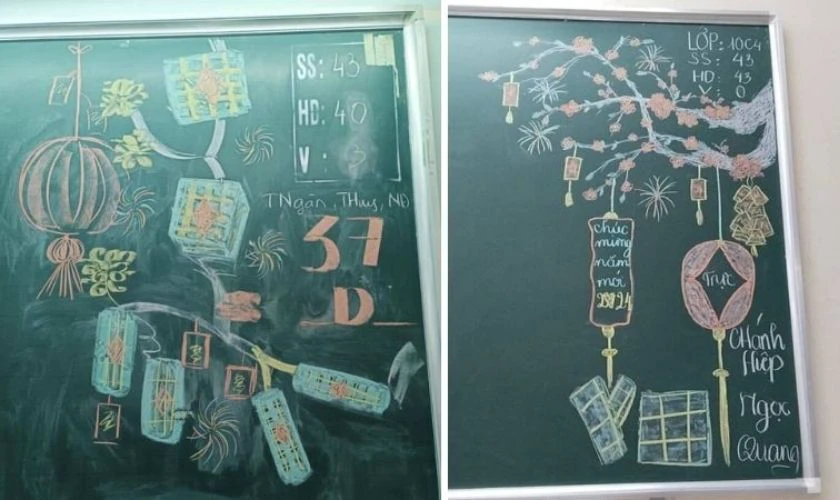 SS: 43
HD: 40
V : 3
TNgan, THuy, NĐ
37
D
LỚP: 10C4
SS: 43
HD: 43
V: 0
chúc
mừng
năm
mới
2024
Trực
Chánh
Hiệp
Ngọc
Quang